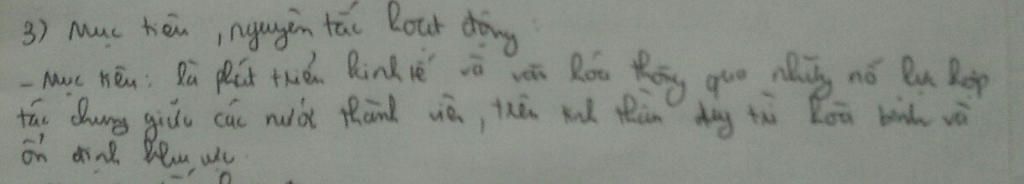 3) Mục tiêu, nguyên tắc hoạt động:
- Mục tiêu: là phát triển kinh tế và văn hóa thông qua những nố lực hợp
tác chung giữa các nước thành viên, trên tinh thần duy trì hoà bình và
ổn định khu vực.